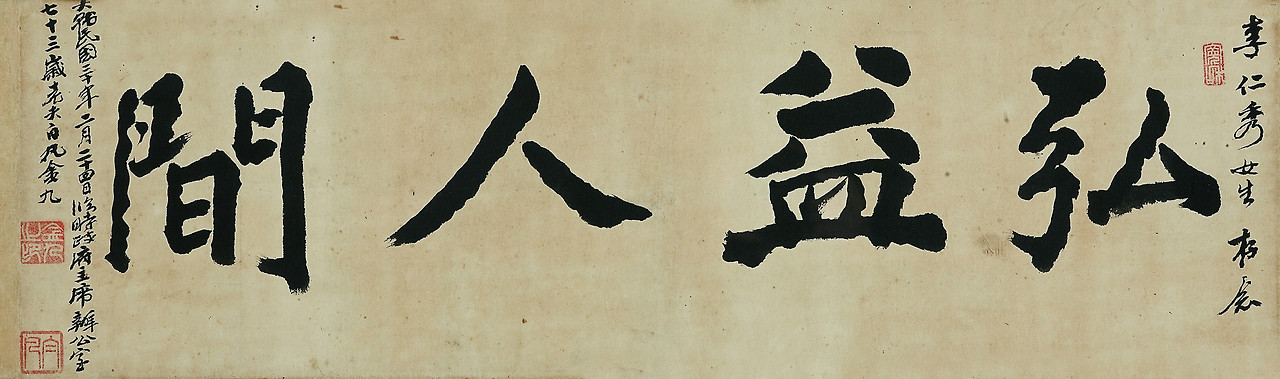 李仁秀女生 存念
弘益人間
大韓民國三十年二月二十四日臨時政府主席辦公室
七十三歲老夫白凡金九
白凡